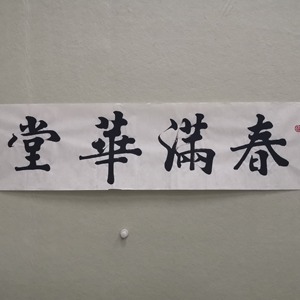 春滿華堂